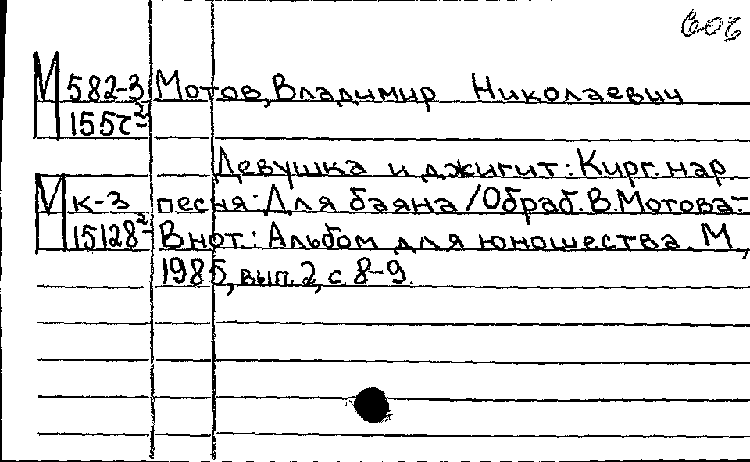 М 582-3 Мотов, Владимир Николаевич
155
Девушка и джигит: Кирг. нар.
М к-3 песня. Для баяна / Обраб. В. Мотова.-
15128 В нот.: Альбом для юношества. М.,
1985, вып. 2, с. 8-9.